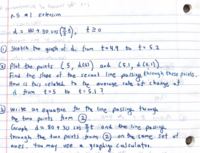 N.S #1 extension
d = 80 + 30 cos (π/2 t), t ≥ 0
① Sketch the graph of d from t=4.9 to t = 5.2
② Plot the points (5, d(5)) and (5.1, d(5.1))
Find the slope of the secant line passing through these points.
How is this related to the average rate of change of
d from t=5 to t=5.1?
③ Write an equation for the line passing through
the two points from ②.
Graph d = 80 + 30 cos π/2 t and the line passing
through the two points from ② on the same set of
axes. You may use a graphing calculator.